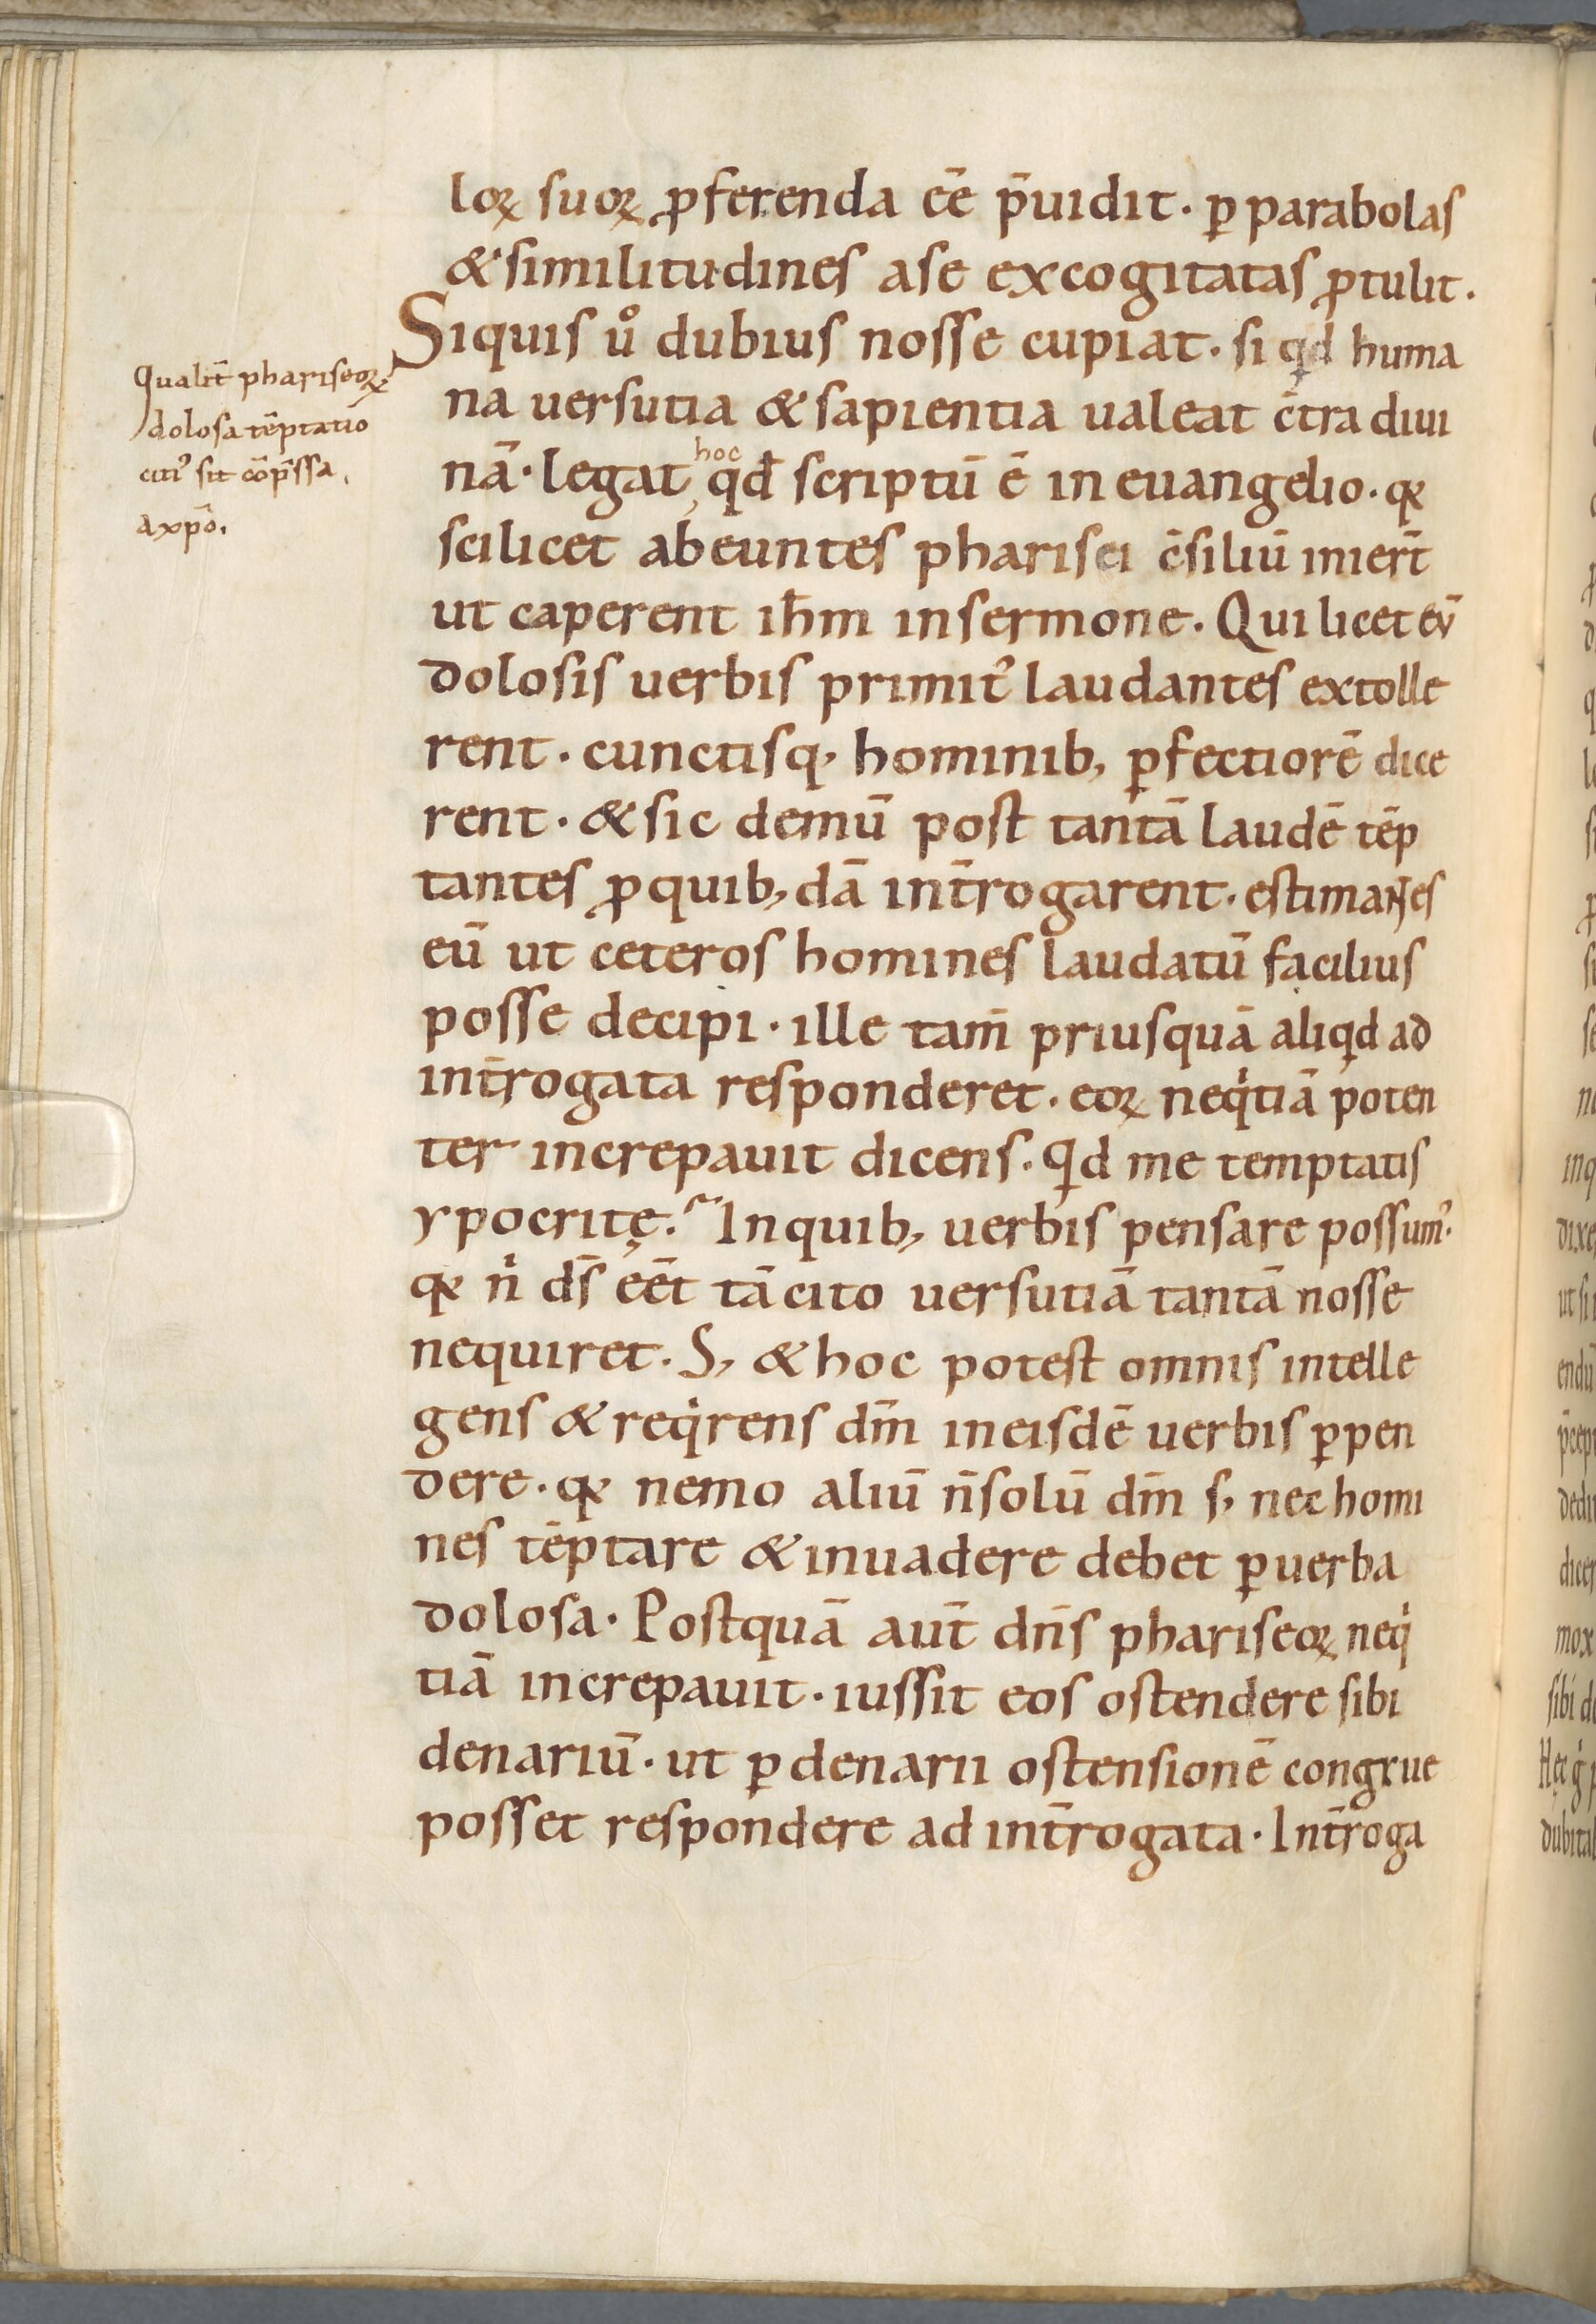 loꝝ suoꝝ ꝓferenda eē p̄uidit· ꝑ parabolas
& similitudines a se excogitatas ꝓtulit.
Siquis uͦ dubius nosse cupiat· si qͥd huma
na uersutia & sapientia ualeat c̄tra diui
nā· legat hoc qd̄ scriptū ē in euangelio· qꝛ
scilicet abeuntes pharisei c̄siliū inier̄t
ut caperent ih̄m in sermone. Qui licet eū
dolosis uerbis primit᷑ laudantes extolle
rent· cunctisq, hominib, ꝑfectiorē dice
rent· & sic demū post tantā laudē tēp
tantes ꝓ quib,dā int̄rogarent· estimantes
eū ut ceteros homines laudatū facilius
posse decipi· ille tam̄ priusquā aliqͥd ad
int̄rogata responderet· eoꝝ neqͥtiā poten
ter increpauit dicens. Qͥd me temptatis
ypocritę? In quib, uerbis pensare possum᷒·
qꝛ nͥ ds̄ eēt tā cito uersutiā tantā nosse
nequiret. S, & hoc potest omnis intelle
gens & reqͥrens dm̄ in eisdē uerbis ꝑpen
dere· qꝛ nemo aliū n̄ solū dm̄ s, nec homi
nes tēptare & inuadere debet ꝑ uerba
dolosa· Postquā aut̄ dn̄s phariseoꝝ neqͥ
tiā increpauit· iussit eos ostendere sibi
denariū· ut ꝑ denarii ostensionē congrue
posset respondere ad int̄rogata· Int̄roga
Qualit̄ phariseoꝝ
dolosa tēptatio
cit᷑ sit cōp̄ssa
a xp̄o.